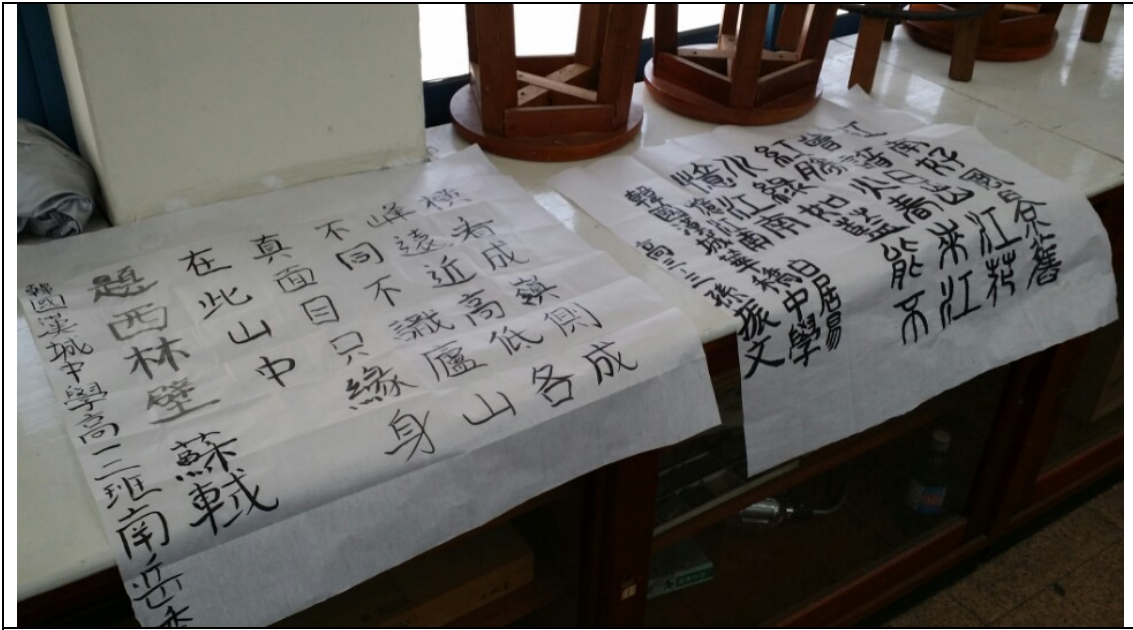 橫看成嶺側成
峰遠近高低各
不同不識廬山
真面目只緣身
在此山中
題西林壁 蘇軾
韓國漢城中學高一二班南岳
江南好風景舊
曾諳日出江花
紅勝火春來江
水綠如藍能不
憶江南 白居易
韓國漢城華僑中學
高三二孫振文